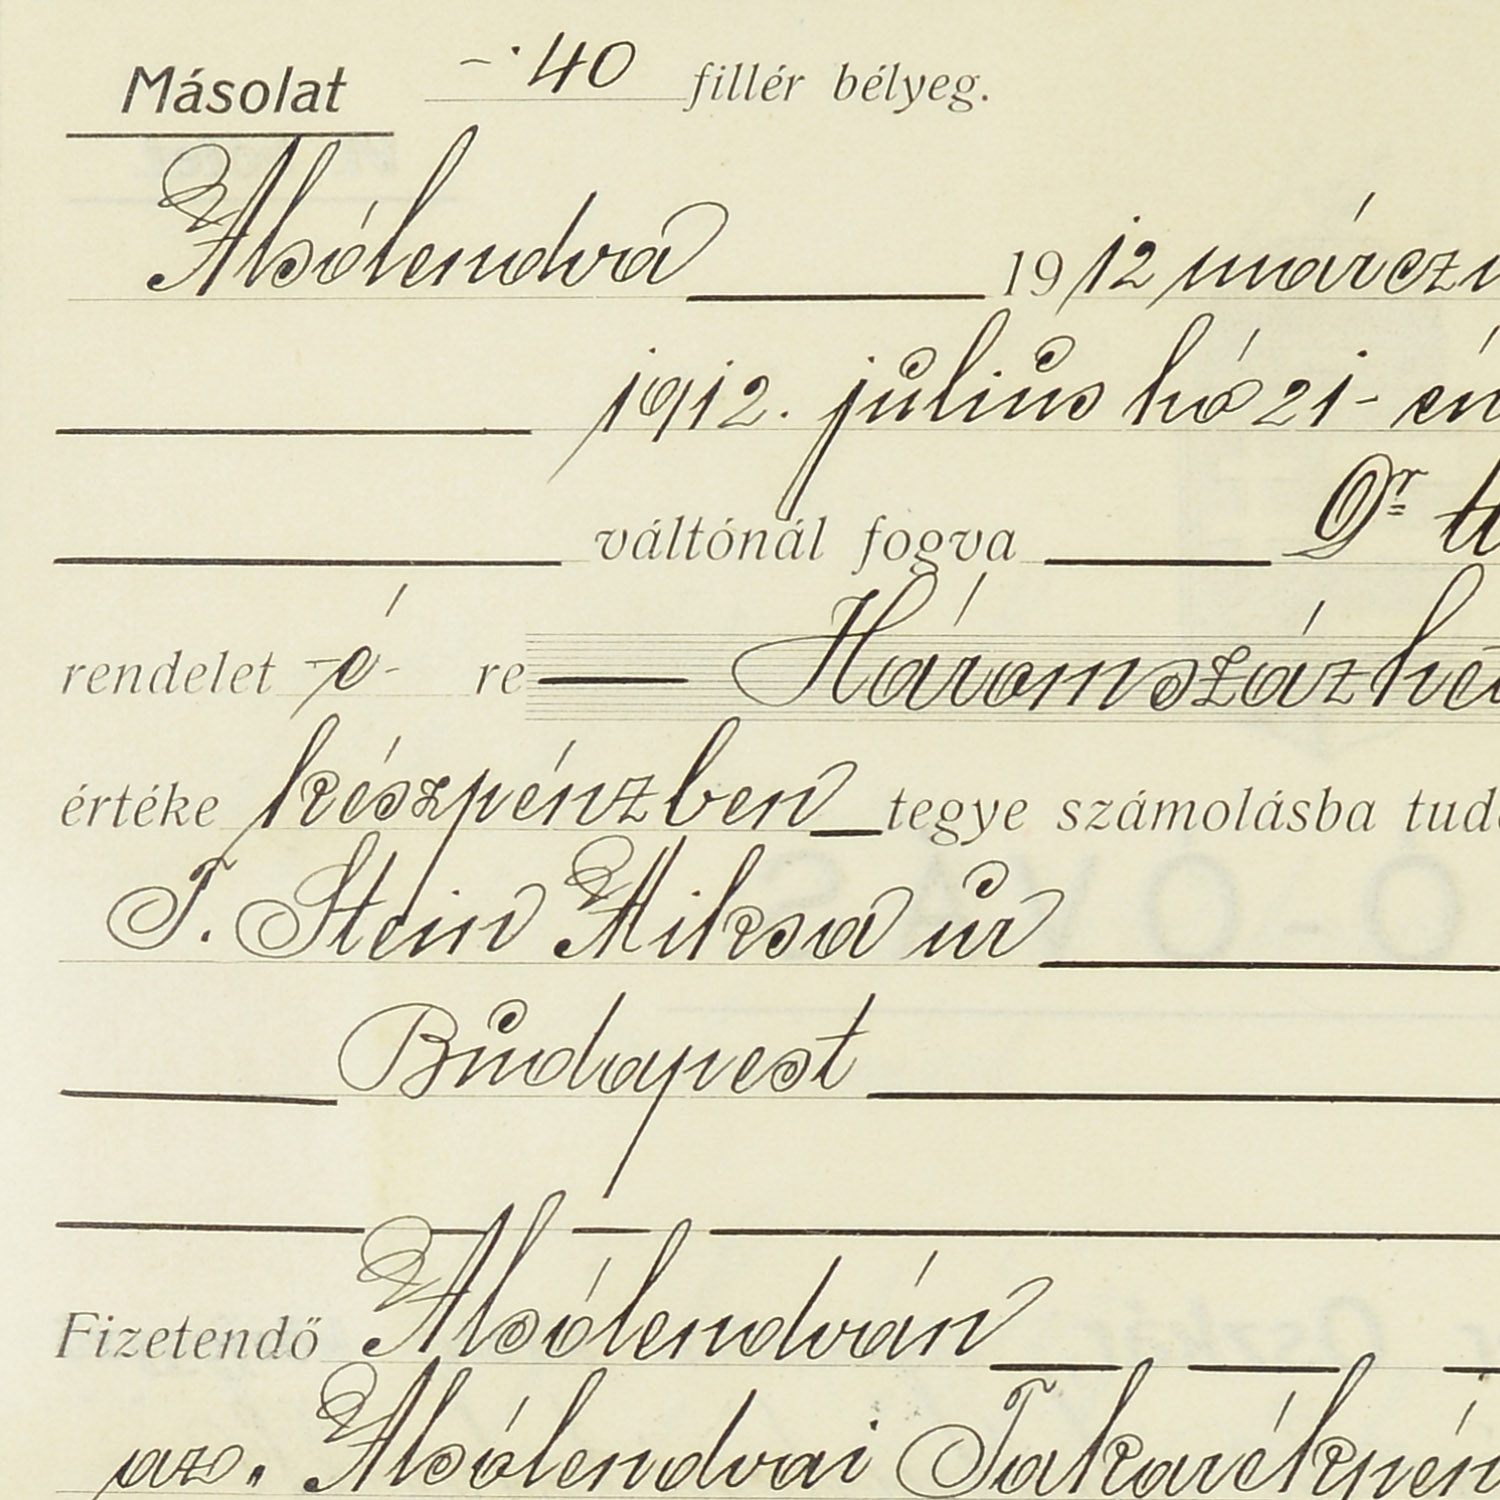 Másolat -·40 fillér bélyeg.
Alsólendva 1912
1912. július hó 21-én
váltónál fogva Ör
rendelet -é- re
értéke készpénzben tegye számolásba
T. Stein Miksa úr
Budapest
Fizetendő Alsólendván
az. Alsólendvai